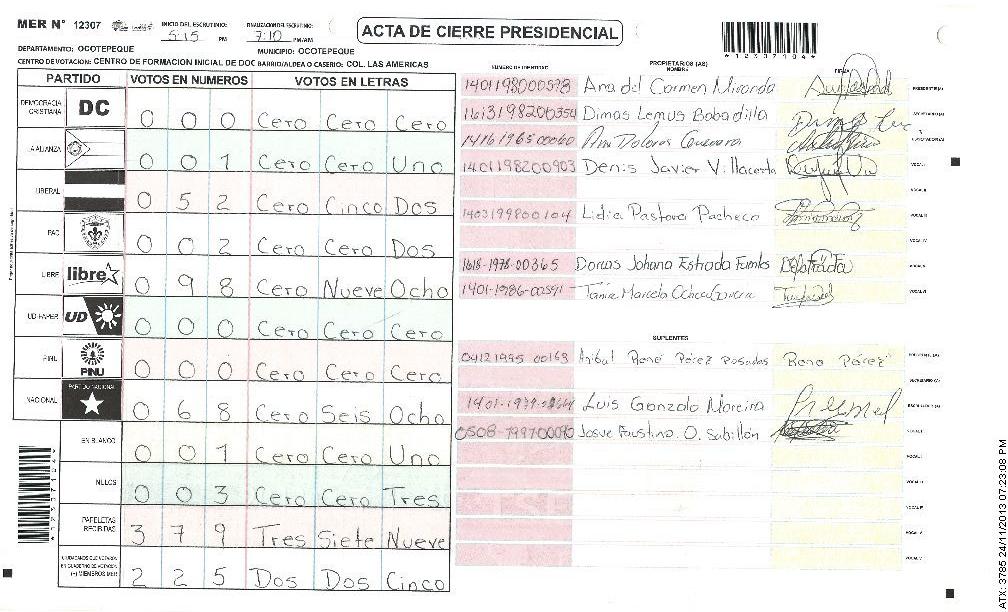 MER N° 12307
INICIO DEL ESCRUTINIO: 5:15 PM
FINALIZACION DEL ESCRUTINIO: 7:10 PM/AM
ACTA DE CIERRE PRESIDENCIAL
*1237104*
DEPARTAMENTO: OCOTEPEQUE
MUNICIPIO: OCOTEPEQUE
CENTRO DE VOTACION: CENTRO DE FORMACION INICIAL DE DOC BARRIO/ALDEA O CASERIO: COL. LAS AMERICAS
PARTIDO VOTOS EN NUMEROS VOTOS EN LETRAS
DEMOCRACIA CRISTIANA DC 0 0 0 Cero Cero Cero
LA ALIANZA 0 0 1 Cero Cero Uno
LIBERAL 0 5 2 Cero Cinco Dos
PAC 0 0 2 Cero Cero Dos
LIBRE libre 0 9 8 Cero Nueve Ocho
UD-FAPER UD 0 0 0 Cero Cero Cero
PINU PINU 0 0 0 Cero Cero Cero
NACIONAL PARTIDO NACIONAL 0 6 8 Cero Seis Ocho
EN BLANCO 0 0 1 Cero Cero Uno
NULOS 0 0 3 Cero Cero Tres
PAPELETAS RECIBIDAS 3 7 9 Tres Siete Nueve
CIUDADANOS QUE VOTARON EN CUADERNO DE VOTACION (+) MIEMBROS MER 2 2 5 Dos Dos Cinco
NUMERO DE IDENTIDAD PROPIETARIOS (AS) NOMBRE FIRMA
1401198000578 Ana del Carmen Miranda PRESIDENTE (A)
1613198200354 Dimas Lemus Bobadilla SECRETARIO (A)
1416196500060 Ana Dolores ESCRUTADOR (A)
1401198200903 Denis Javier Villacorta VOCAL I
VOCAL II
1403199800104 Lidia Pastora Pacheco VOCAL III
VOCAL IV
1618-1978-00365 Dorcas Johana Estrada VOCAL V
1401-1986-00591 Tania Marcela VOCAL VI
SUPLENTES
04121995 00163 Anibal Rene Pérez Posadas Rene Pérez PRESIDENTE (A)
SECRETARIO (A)
Luis Gonzalo Moreira ESCRUTADOR (A)
Josue Faustino O. Subillón VOCAL I
VOCAL II
VOCAL III
VOCAL IV
VOCAL V
VOCAL VI
TSE
*1237104*
ATX: 3785 24/11/2013 07:23:08 PM